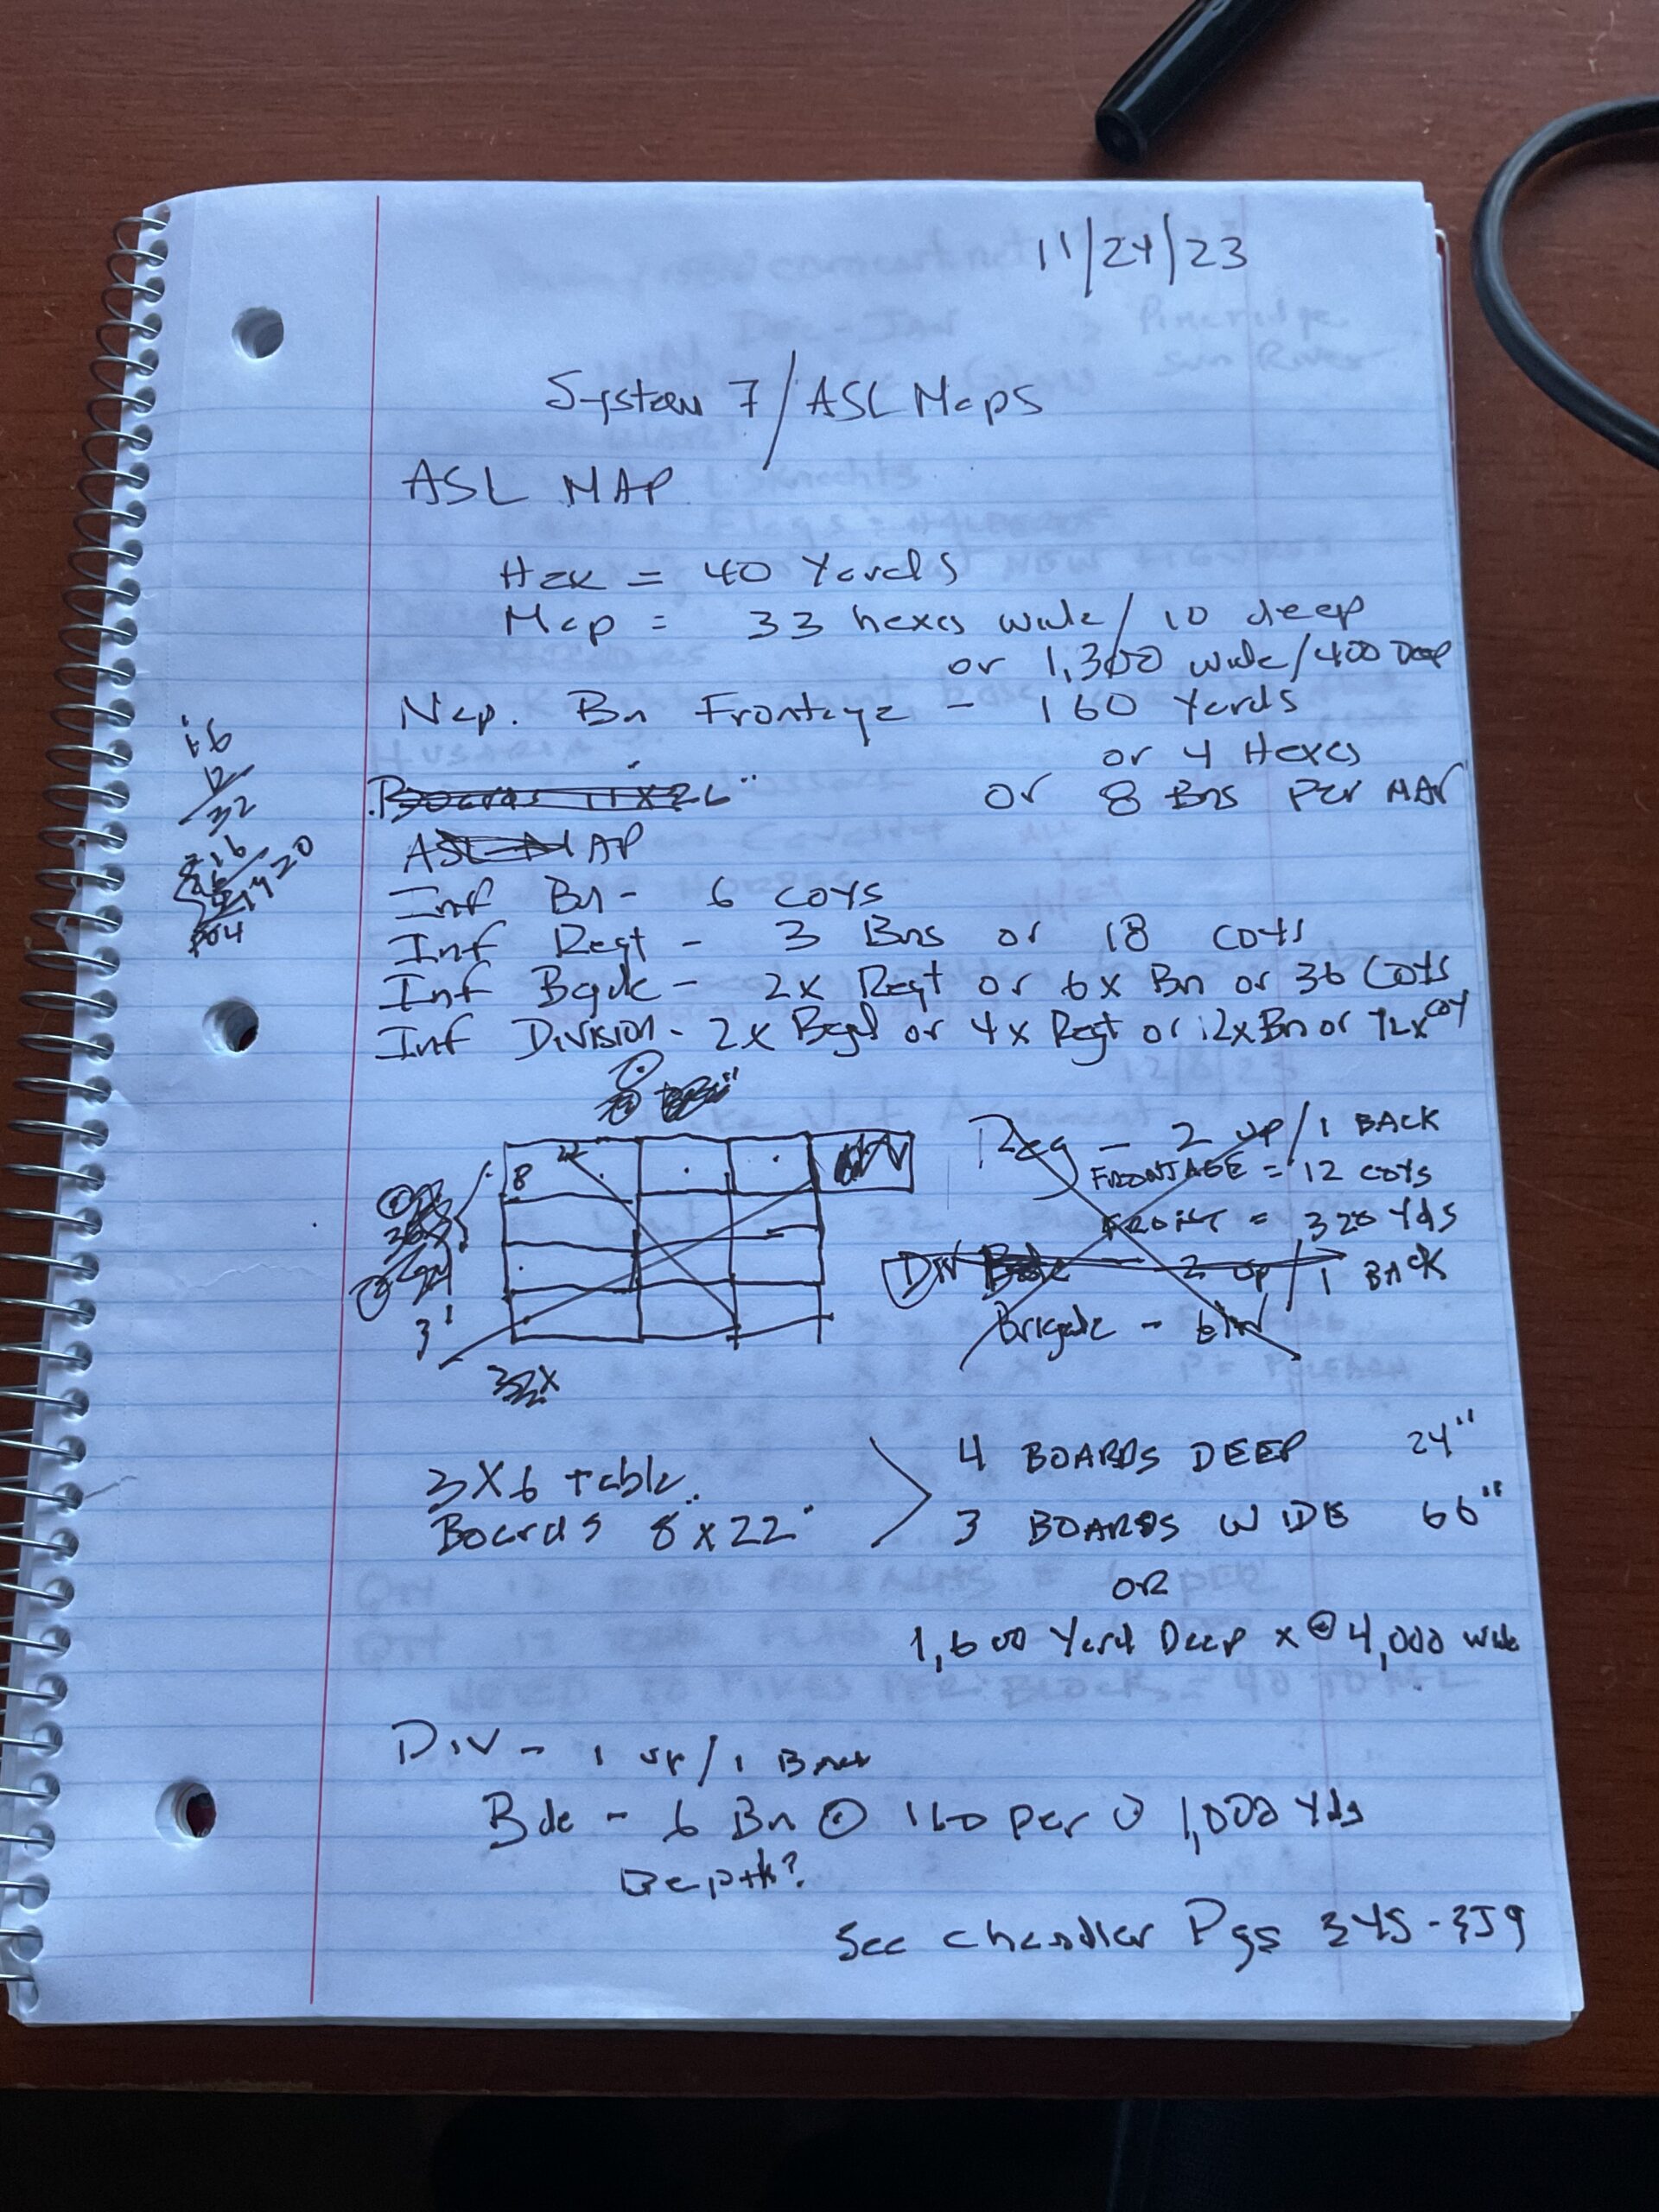 11/24/23
System 7/ASL Maps
ASL MAP
Hex = 40 Yards
Map = 33 hexes wide/10 deep
or 1,300 wide/400 Deep
Nap. Bn Frontage - 160 Yards
or 4 Hexes
or 8 Bns Per MAP
Boards 11x26"
ASL MAP
16
12
32
Inf Bn - 6 coys
Inf Regt - 3 Bns or 18 coys
Inf Bgde - 2x Regt or 6x Bn or 36 Coys
Inf Division - 2x Bgd or 4x Regt or 12x Bn or 72x coy
8 22
3'
32x
Reg - 2 up/1 BACK
FRONTAGE = 12 coys
FRONT = 320 Yds
Div 2 up/1 BACK
Brigade -
3x6 table
Boards 8x22"
4 BOARDS DEEP 24"
3 BOARDS WIDE 66"
OR
1,600 Yard Deep x @ 4,000 wide
Div - 1 up/1 Back
Bde - 6 Bn @ 160 per @ 1,000 Yds
Depth?
See Chandler Pgs 345-359